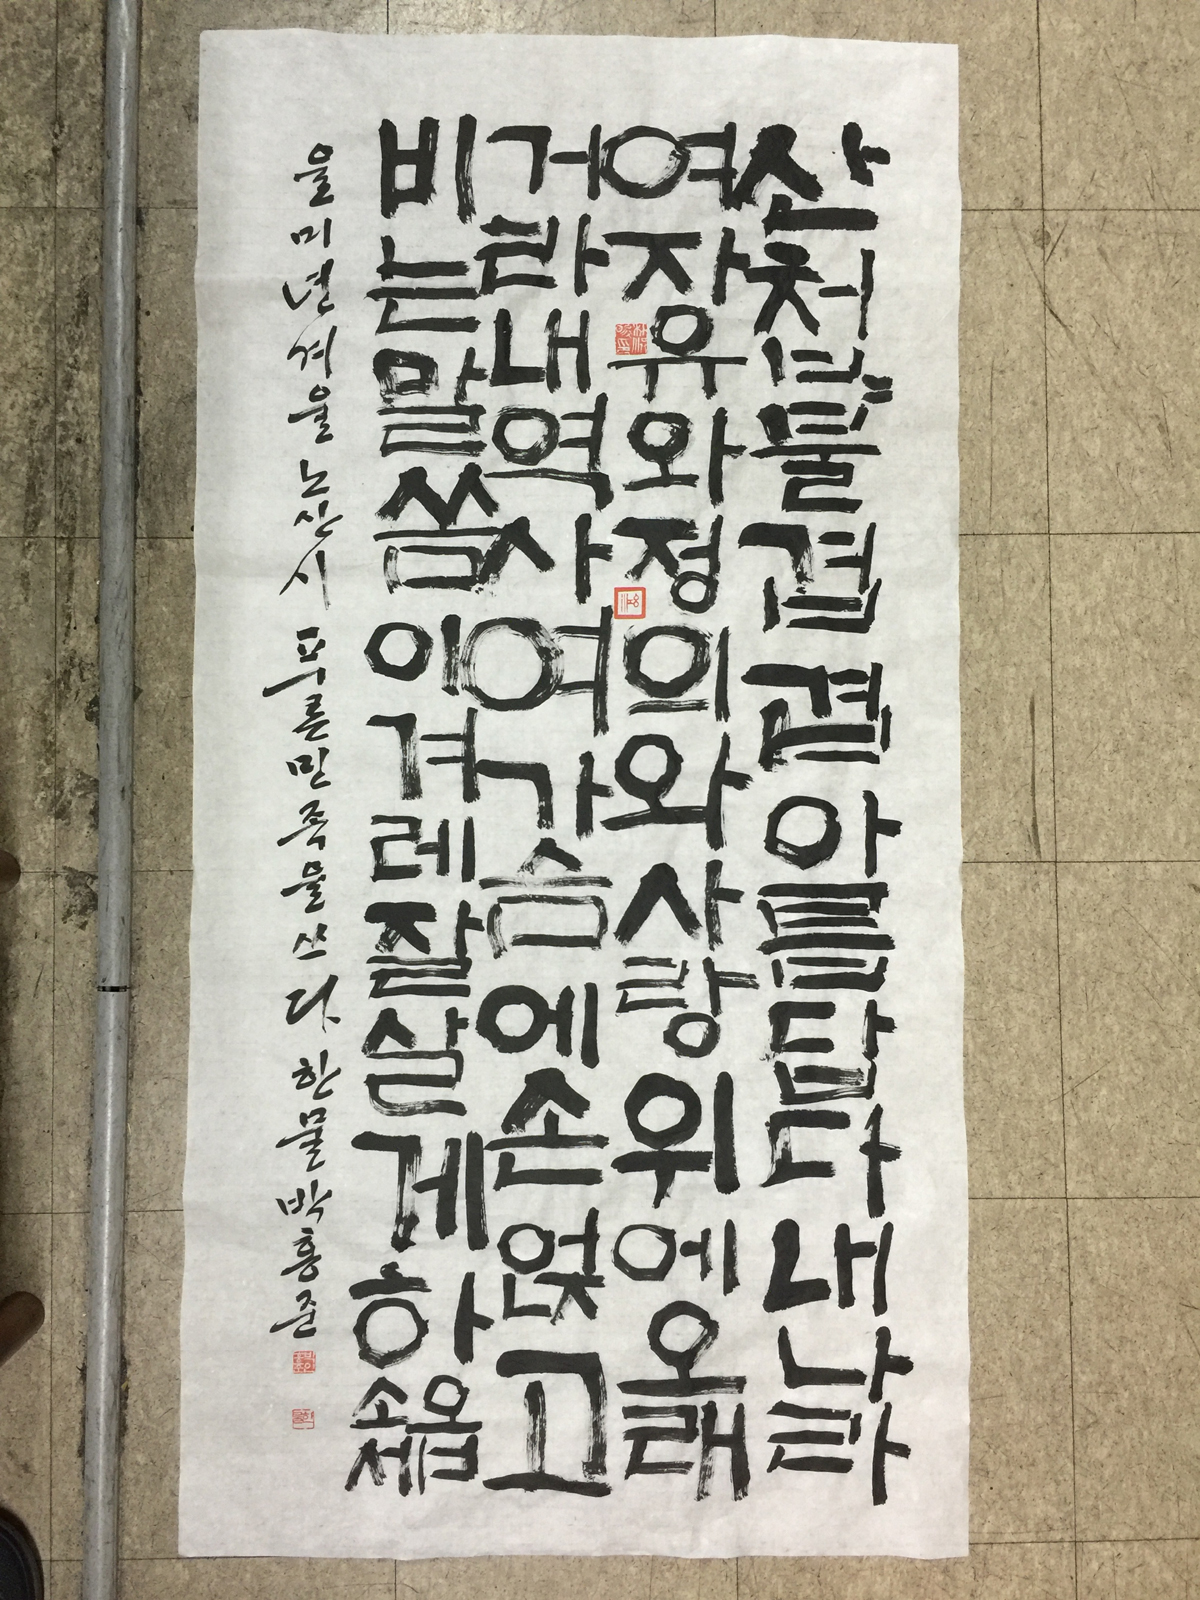 산첩〃물겹겹아름답다내나라
여자유와정의와사랑위에오래
거라내역사여가슴에손얹고
비는말씀이겨레잘살게하옵소세
을미년겨울노산시푸른민족을쓰다 한물박흥준